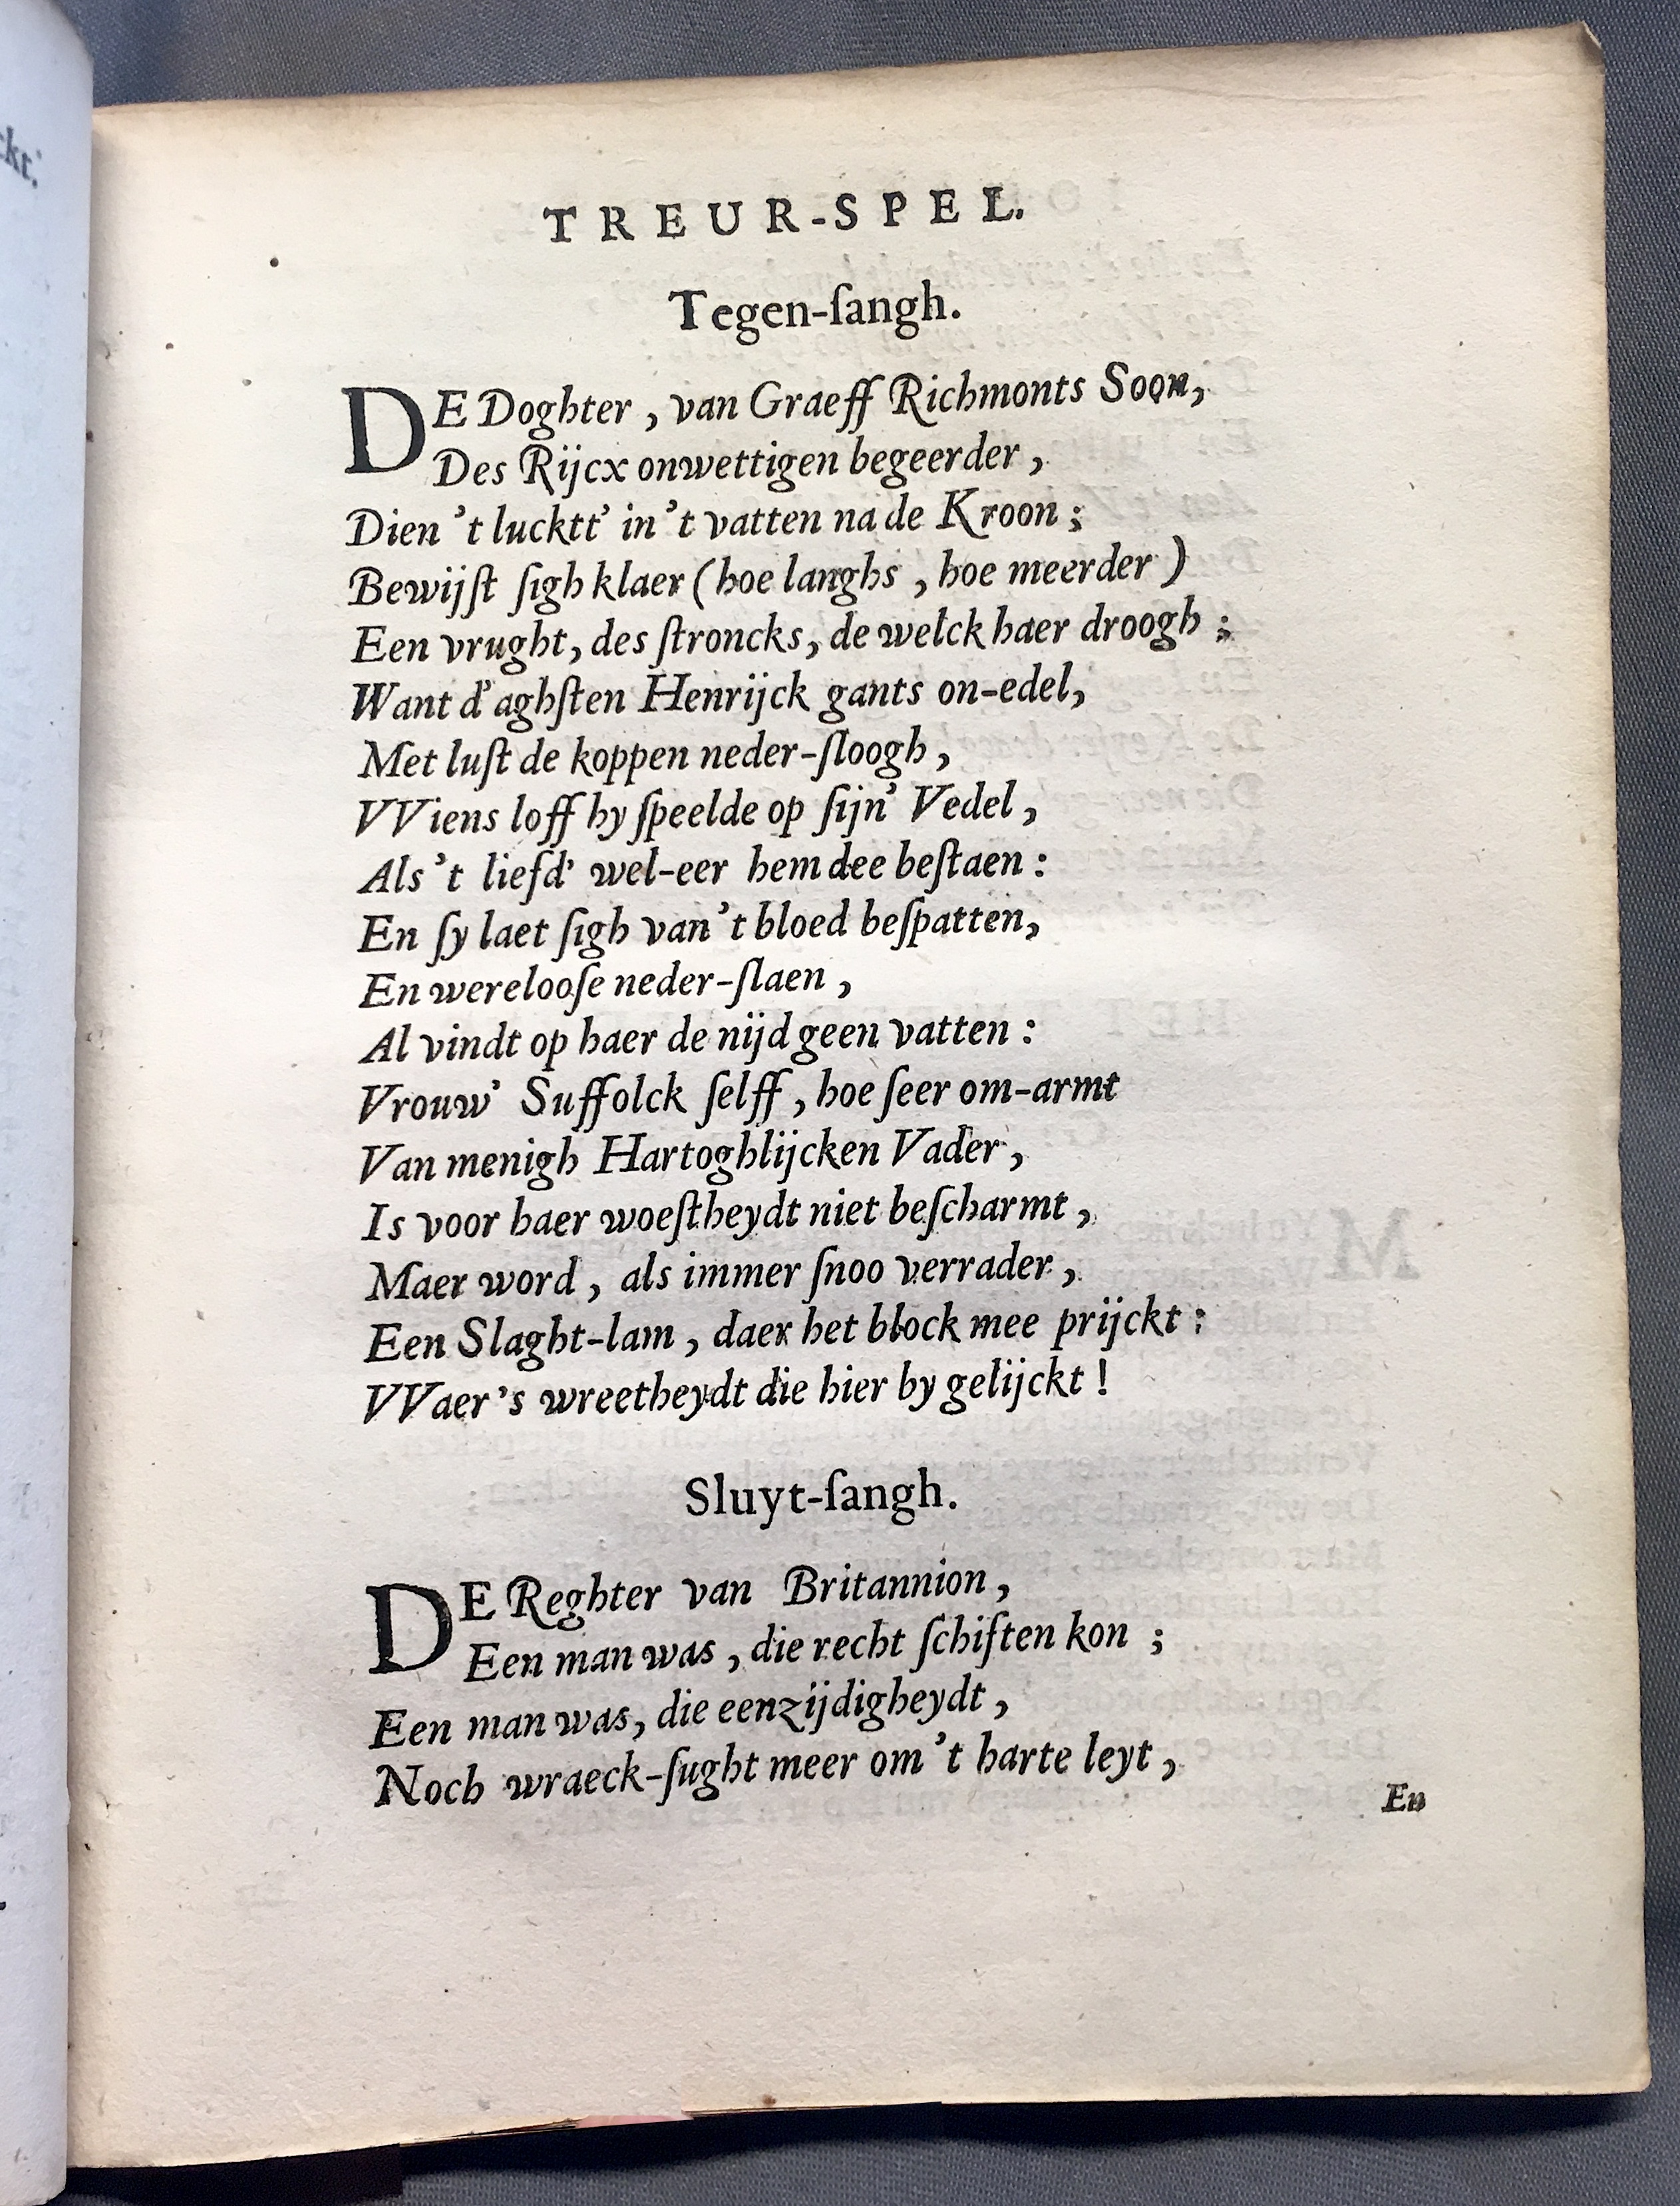 ckt.
TREUR-SPEL.
Tegen-ſangh.
DE Doghter, van Graeff Richmonts Soon,
Des Rijcx onwettigen begeerder,
Dien 't lucktt' in 't vatten na de Kroon;
Bewijſt ſigh klaer (hoe langhs, hoe meerder)
Een vrught, des ſtroncks, de welck haer droogh;
Want d'aghſten Henrijck gants on-edel,
Met luſt de koppen neder-ſloogh,
VViens loff hy ſpeelde op ſijn' Vedel,
Als 't liefd' wel-eer hem dee beſtaen:
En ſy laet ſigh van 't bloed beſpatten,
En werelooſe neder-ſlaen,
Al vindt op haer de nijd geen vatten:
Vrouw' Suffolck ſelff, hoe ſeer om-armt
Van menigh Hartoghlijcken Vader,
Is voor haer woeſtheydt niet beſcharmt,
Maer word, als immer ſnoo verrader,
Een Slaght-lam, daer het block mee prijckt:
VVaer's wreetheydt die hier by gelijckt!
Sluyt-ſangh.
DE Reghter van Britannion,
Een man was, die recht ſchiften kon;
Een man was, die eenzijdigheydt,
Noch wraeck-ſught meer om 't harte leyt,
En